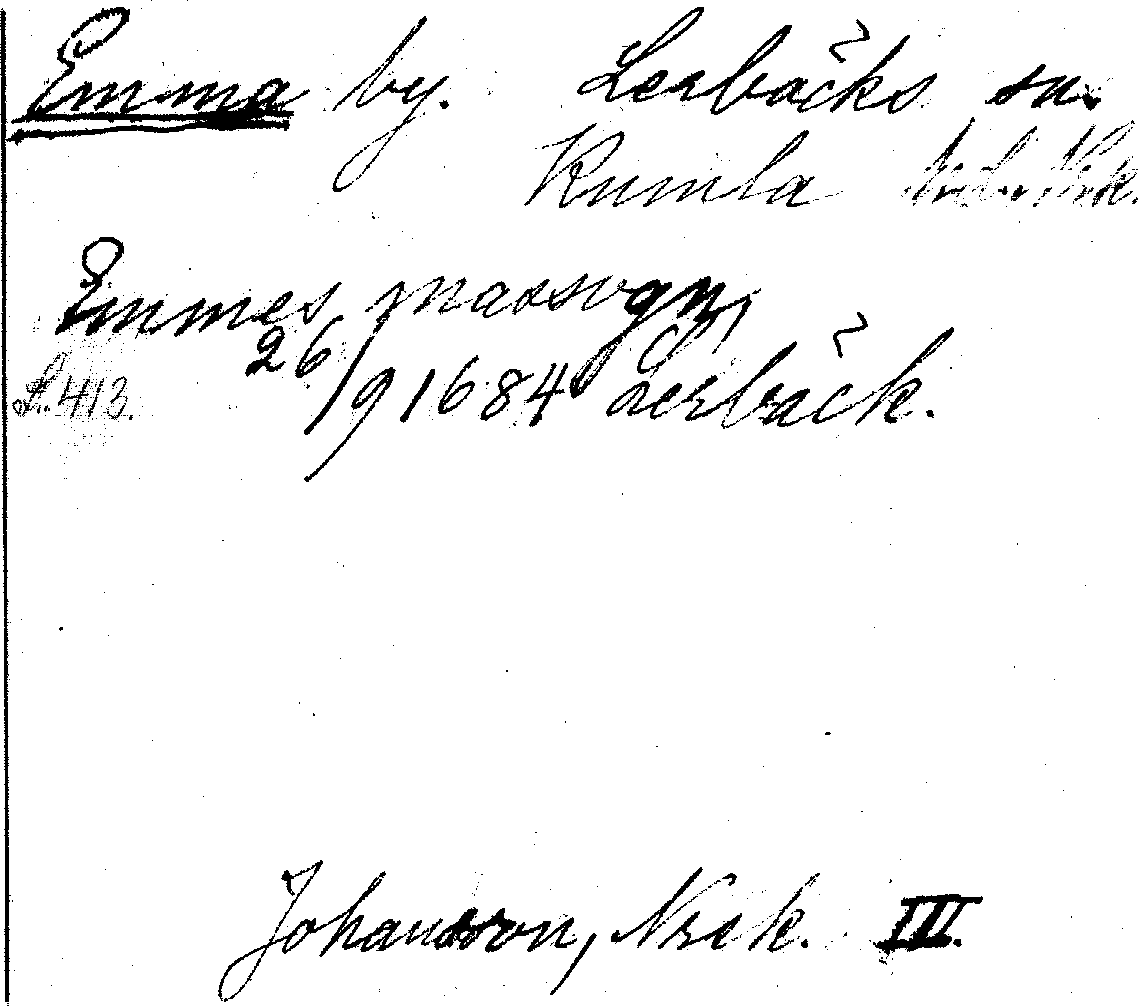 Emma by. Lerbäcks sn.
Kumla
Emmes massugn,
26/9 1684 Lerbäck.
L. 413.
Johansson, Nrck. III.